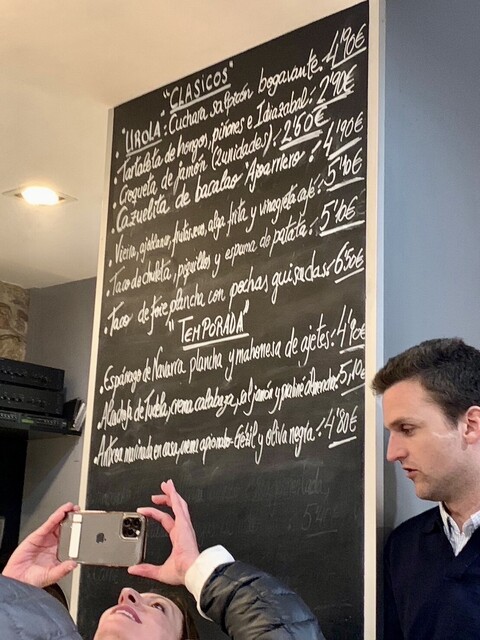 "CLASICOS"
• "UROLA": Cuchara salpicón bogavante: 4'90€
• Tartaleta de hongos, piñones e Idiazabal: 2'90€
• Croqueta de jamón (2 unidades): 2'60€
• Cazuelita de bacalao "Ajoarriero": 4'90€
• Vieira, ajoblanco, frutos secos, alga frita y vinagreta café: 5'10€
• Taco de chuleta, piquillos y espuma de patata: 5'10€
• Taco de foie plancha con pochas guisadas: 6'50€
"TEMPORADA"
• Espárrago de Navarra plancha y mahonesa de ajetes: 4'90€
• Alcachofa de Tudela, crema calabaza, jamón y praliné almendra: 5'10€
• marinada en casa, crema y oliva negra: 4'80€